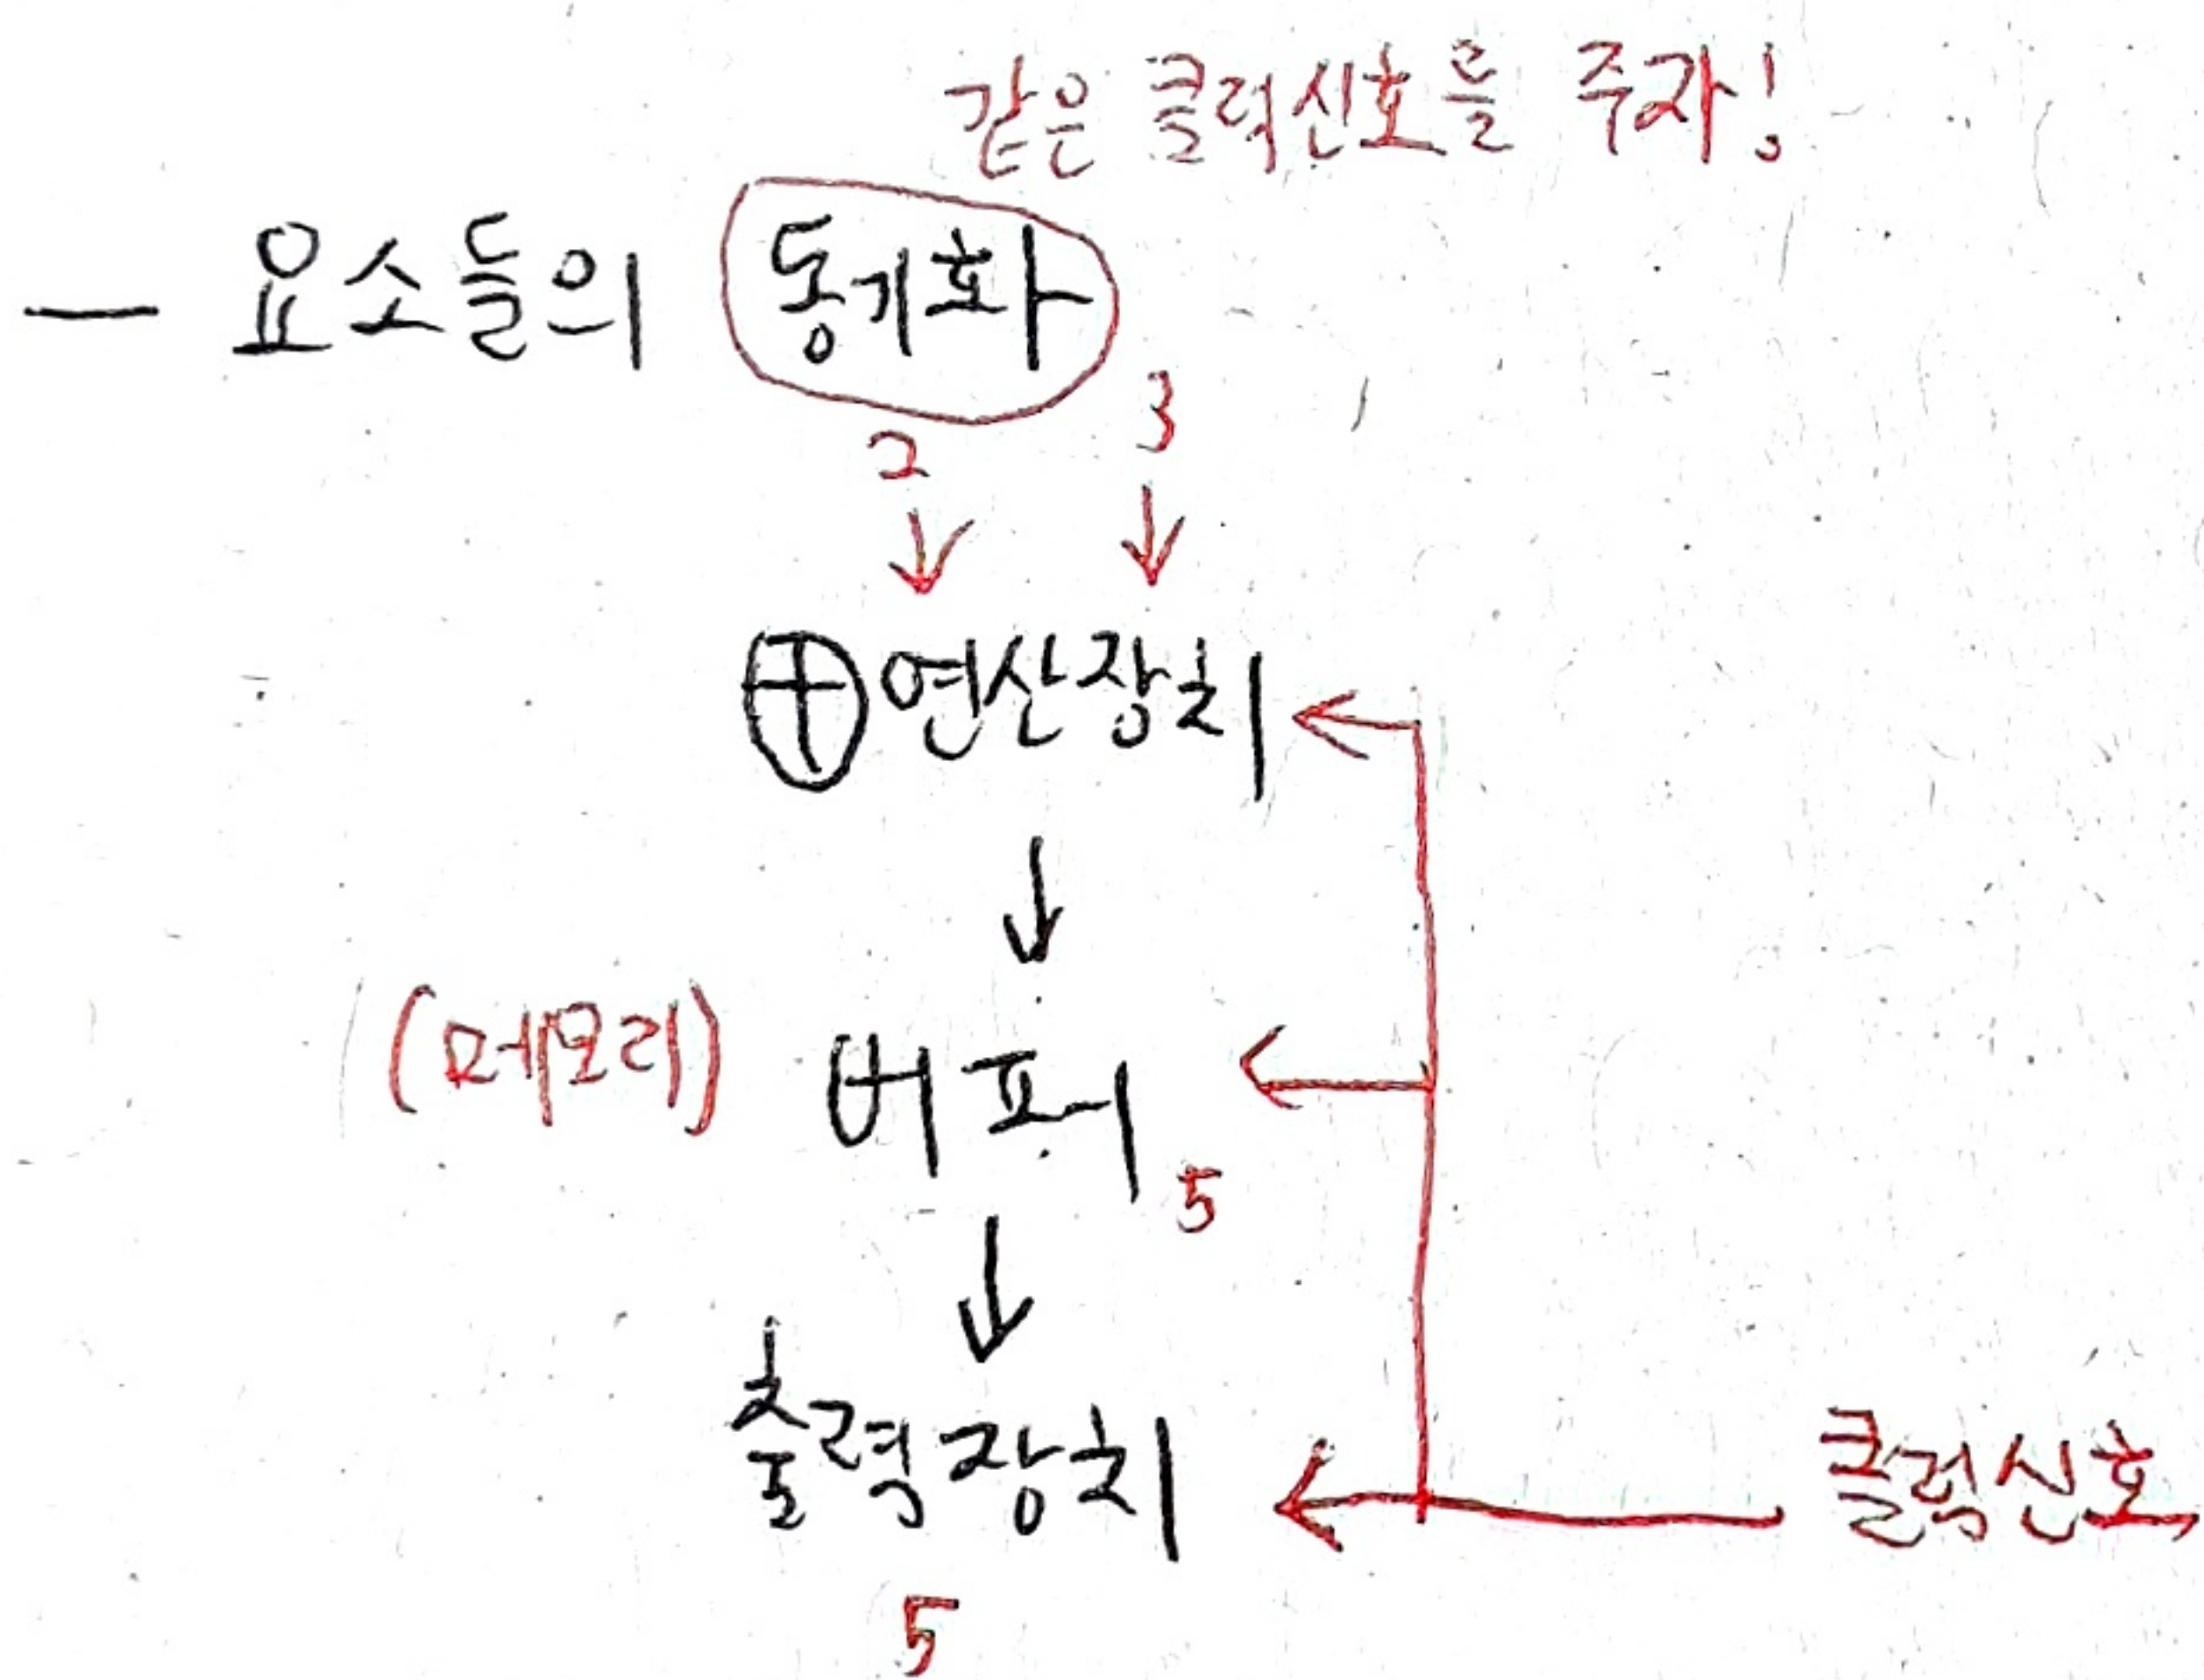 같은 클럭신호를 주자!
— 요소들의 동기화
2 3
⊕ 연산장치
(메모리) 버퍼
5
출력장치 클럭신호
5